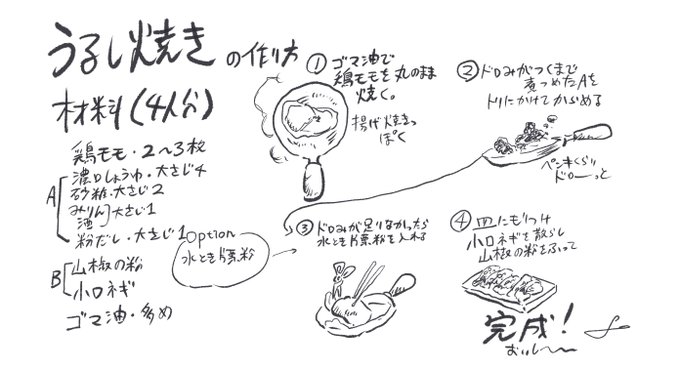 うるし焼きの作り方
材料(4人分)
鶏モモ・2〜3枚
A
濃口しょうゆ・大さじ4
砂糖・大さじ2
みりん
酒
大さじ1
粉だし・大さじ1
B
山椒の粉
小口ネギ
ゴマ油・多め
option
水とき片栗粉
① ゴマ油で
鶏モモを丸のまま
焼く。
揚げ焼きっ
ぽく
② ドロみがつくまで
煮つめたAを
トリにかけて
ペンキくらい
ドローっと
③ ドロみが足りなかったら
水とき片栗粉を入れる
④ 皿にもりつけ
小口ネギを散らし
山椒の粉をふって
完成!
おいし〜〜